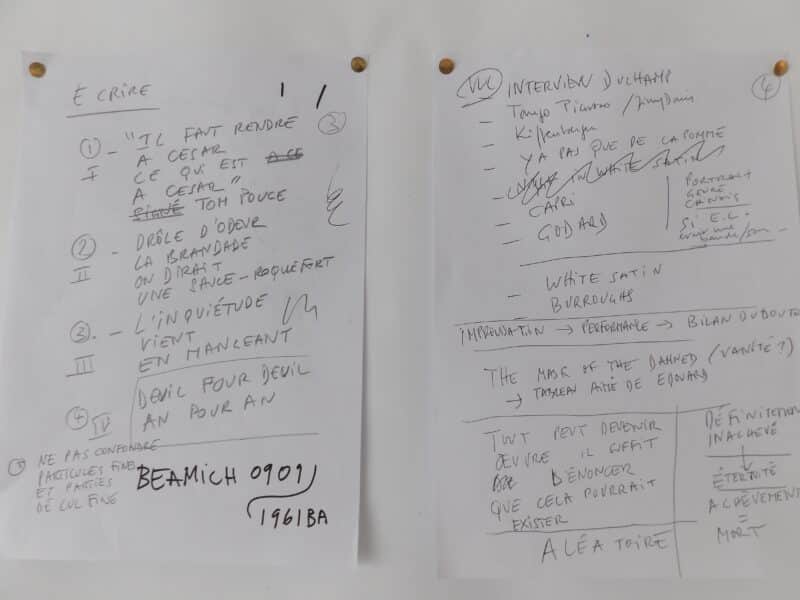 ÉCRIRE
1 /
① - "IL FAUT RENDRE ③
I A CESAR
CE QUI EST
A CESAR"
TOM POUCE
② - DRÔLE D'ODEUR
II LA BRANDADE
ON DIRAIT
UNE SAUCE-ROQUEFORT
③. - L'INQUIÉTUDE
III VIENT
EN MANGEANT
④ IV DEUIL POUR DEUIL
AN POUR AN
NE PAS CONFONDRE
PARTICULES FINES
ET PARTIES
DE CUL FINE
BEAMICH 0909
1961BA
INTERVIEW DUCHAMP
④
- Tango Picasso /
- Kippenberger
- YA PAS QUE DE LA POMME
- IN WHITE SATIN
- CAPRI
- GODARD
PORTRAIT
GENRE
CHINOIS
SI E.L.
- WHITE SATIN
- BURROUGHS
IMPROVISATION → PERFORMANCE → BILAN DU DOUTE
THE MASK OF THE DAMNED (VANITÉ?)
→ TABLEAU AIMÉ DE EDOUARD
TOUT PEUT DEVENIR
ŒUVRE IL SUFFIT
D'ÉNONCER
QUE CELA POURRAIT
EXISTER
DÉFINITION
INACHEVÉ
↓
ÉTERNITÉ
ACHÈVEMENT
=
MORT
ALÉATOIRE